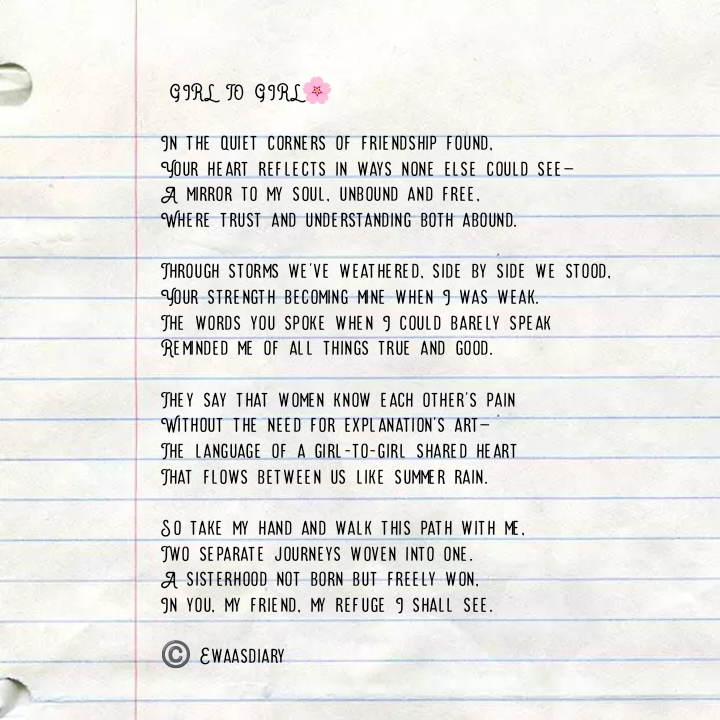 GIRL TO GIRL🌸
IN THE QUIET CORNERS OF FRIENDSHIP FOUND,
YOUR HEART REFLECTS IN WAYS NONE ELSE COULD SEE—
A MIRROR TO MY SOUL, UNBOUND AND FREE,
WHERE TRUST AND UNDERSTANDING BOTH ABOUND.
THROUGH STORMS WE'VE WEATHERED, SIDE BY SIDE WE STOOD,
YOUR STRENGTH BECOMING MINE WHEN I WAS WEAK.
THE WORDS YOU SPOKE WHEN I COULD BARELY SPEAK
REMINDED ME OF ALL THINGS TRUE AND GOOD.
THEY SAY THAT WOMEN KNOW EACH OTHER'S PAIN
WITHOUT THE NEED FOR EXPLANATION'S ART—
THE LANGUAGE OF A GIRL-TO-GIRL SHARED HEART
THAT FLOWS BETWEEN US LIKE SUMMER RAIN.
SO TAKE MY HAND AND WALK THIS PATH WITH ME,
TWO SEPARATE JOURNEYS WOVEN INTO ONE.
A SISTERHOOD NOT BORN BUT FREELY WON,
IN YOU, MY FRIEND, MY REFUGE I SHALL SEE.
© EWAASDIARY